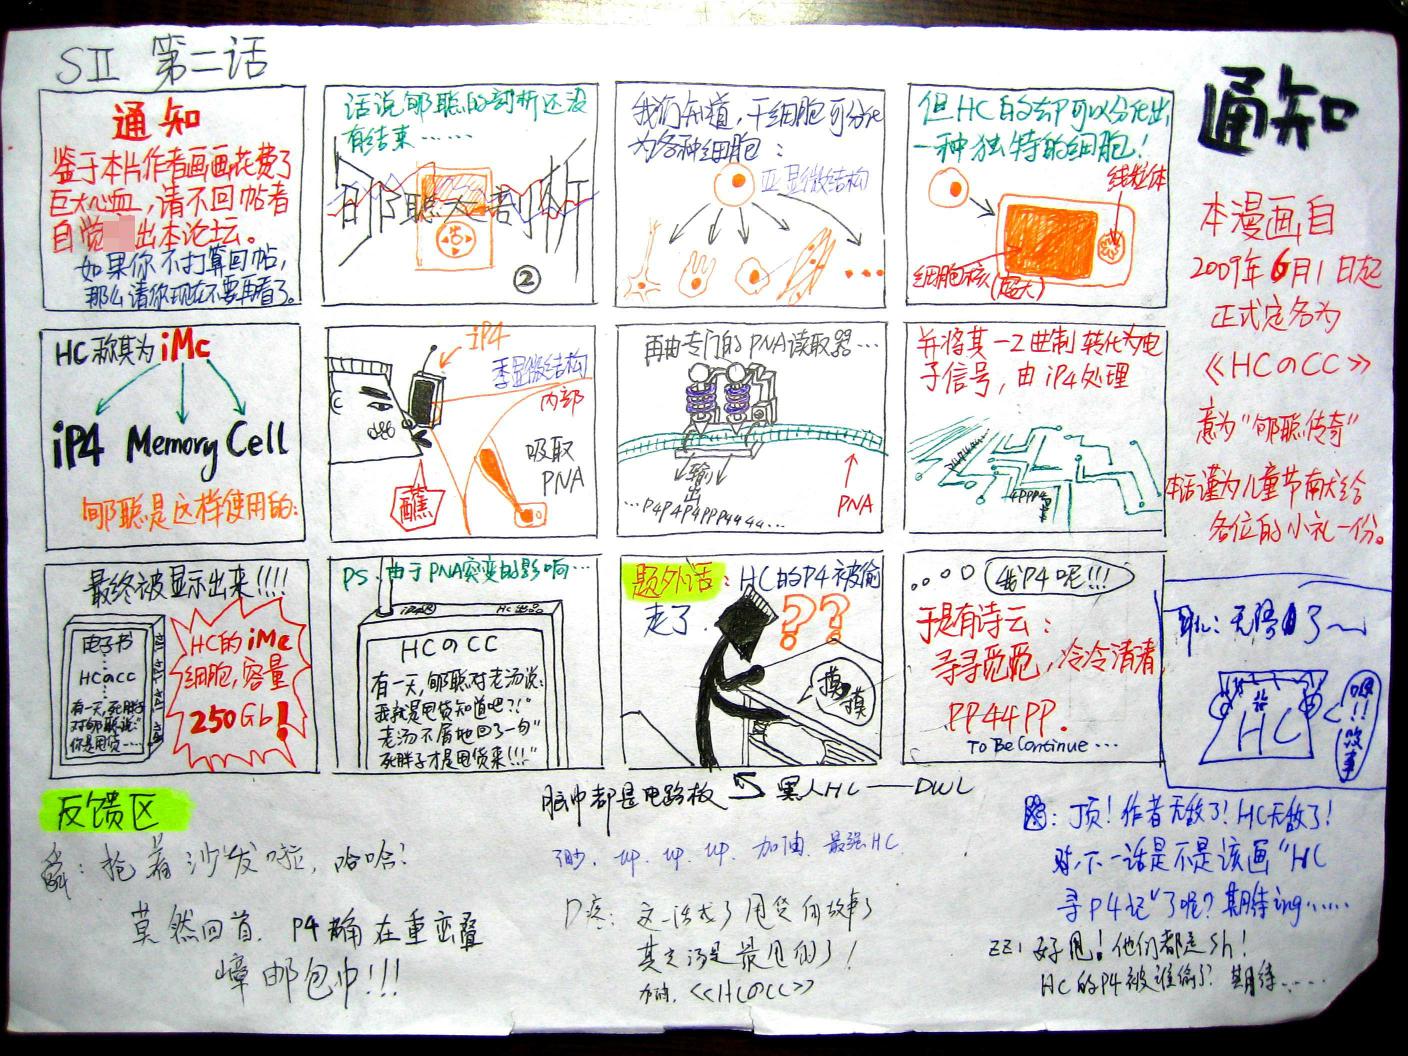 SⅡ 第二话
通知
鉴于本片作者画画花费了
巨大心血,请不回帖者
自觉 出本论坛。
如果你不打算回帖,
那么请你现在不要再看了。
话说郇聪的剖析还没
有结束……
郇聪大剖析
②
我们知道,干细胞可分化
为各种细胞:
亚显微结构
但HC的去P可以分化出
一种独特的细胞!
线粒体
细胞核(超大)
HC称其为iMc
iP4 Memory Cell
郇聪是这样使用的:
iP4
亚显微结构
内部
吸取
PNA
蘸
再由专门的PNA读取器…
输
出
…P4P4P4PPP444a…
PNA
并将其一2进制转化为电
子信号,由iP4处理
4PPP4
最终被显示出来!!!!
电子书
…
HCのCC
…
有一天,死胖子
对郇聪说:
你是甩货……
HC的iMc
细胞,容量
250Gb!
PS.由于PNA突变的影响…
HC出品
HCのCC
有一天,郇聪对老汤说:
"我就是甩货知道吧?!"
老汤不屑地回了一句"
死胖子才是甩货来!!!"
题外话:HC的P4被偷
走了.
??
摸摸
我P4呢!!!
于是有诗云:
寻寻觅觅,冷冷清清,
PP44PP.
To Be Continue…
通知
本漫画自
2009年6月1日起
正式定名为
《HCのCC》
意为"郇聪传奇"
本话谨为儿童节献给
各位的小礼一份。
无语了~
HC
反馈区
抢着沙发啦,哈哈!
莫然回首.P4确在重峦叠
嶂郇包中!!!
脑中都是电路板 黑人HC——DWL
up.up.up.加油.最强HC
D疼:这一话成了甩货的故事了
其实汤是最甩的了!
加油.《HCのCC》
:顶!作者无敌了!HC无敌了!
下一话是不是该画"HC
寻P4记"了呢?期待ing……
ZZ:好甩!他们都是Sh!
HC的P4被谁偷了?期待……